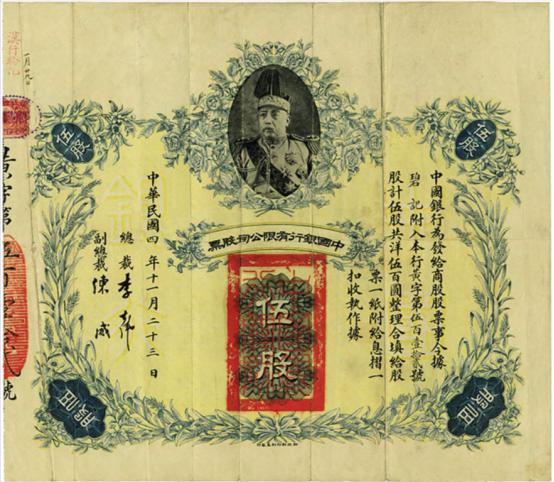 伍股
伍股
中國銀行為發給商股股票事今據
碧記附入本行黃字第伍百壹拾貳號
股計伍股共洋伍百圓整理合填給股
票一紙附給息摺一
扣收執作據
中國銀行有限公司股票
伍股
中華民國四年十一月二十三日
總裁 李
副總裁 陳威
黃字第伍百壹拾貳號
伍股
伍股